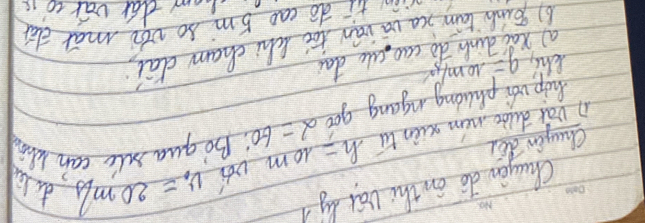 Date No
Chuyên đề ôn thi Vật lý 1
Chuyên đề 1
1) Vật được ném xiên từ h = 10m với v₀ = 20 m/s
hợp với phương ngang góc α = 60°. Bỏ qua sức cản không
khí, g = 10m/s²
a) Xác định độ cao cực đại
b) Tính tầm xa và vận tốc khi chạm đất
độ cao 5m so với mặt đất
chạm đất vật có